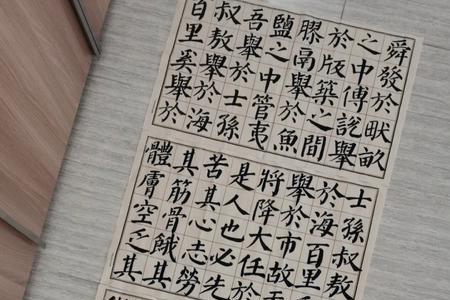 舜發於畎畝
之中傅說舉
於版築之間
膠鬲舉於魚
鹽之中管夷
吾舉於士孫
叔敖舉於海
百里奚舉於
士孫叔敖
於海百里奚
舉於市故
將降大任於
是人也必先
苦其心志勞
其筋骨餓其
體膚空乏其